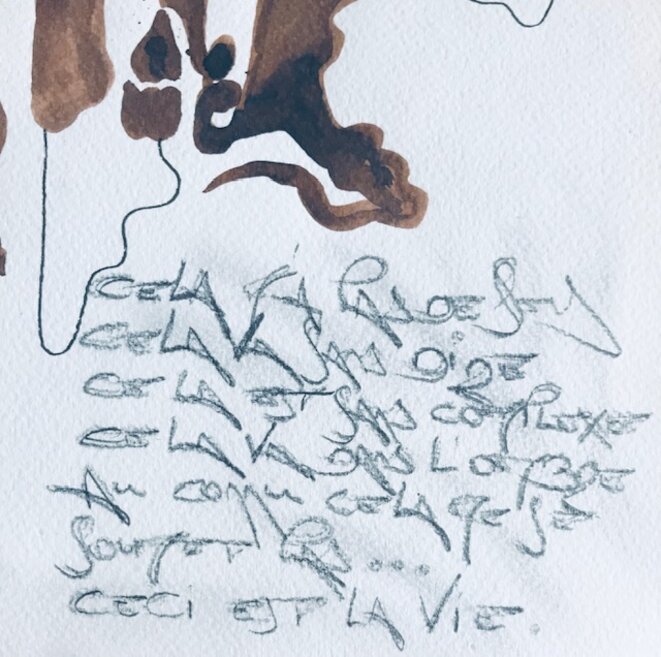 CELA PAS DE SENS
CELA VA SANS DIRE
CELA EST SANS COMPLEXE
CELA VA DANS L'OMBRE
AU COMMUN CELA NE SE
SOUMET PAS ...
CECI EST LA VIE.